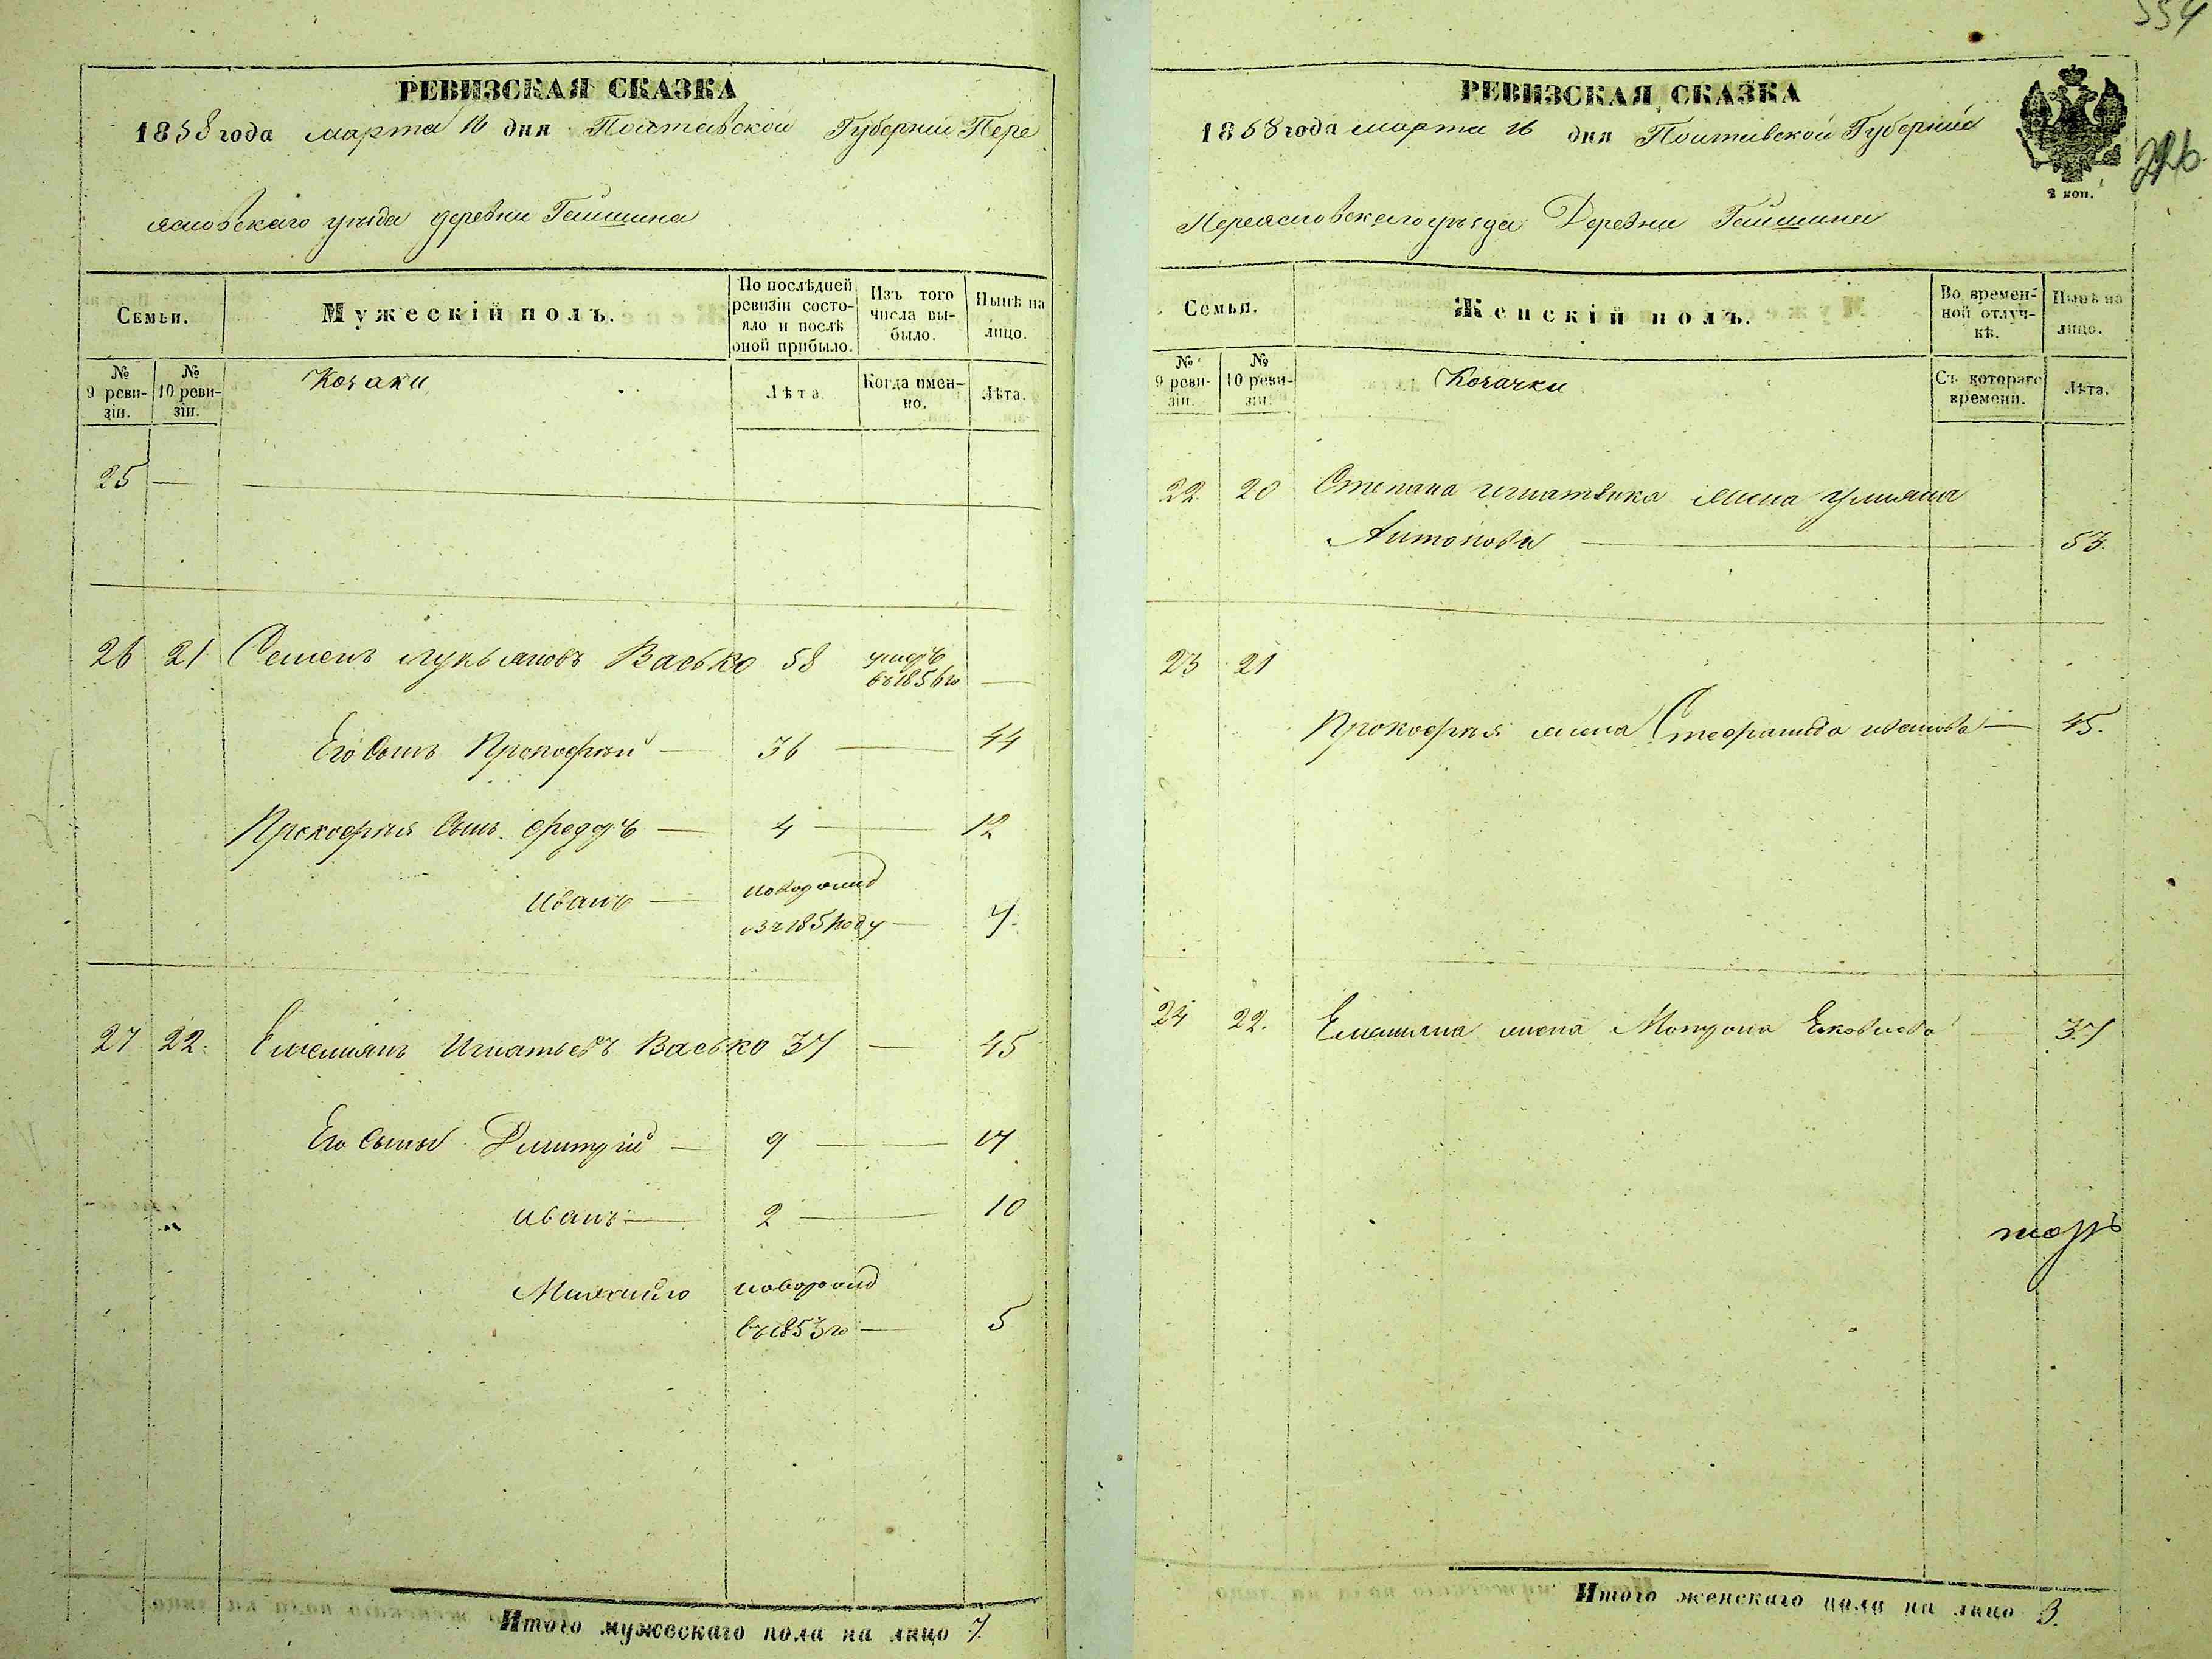 554
РЕВИЗСКАЯ СКАЗКА
1858 года марта 16 дня Полтавской Губернии Пере
яславскаго уѣзда деревни Гайшина
Семьи.
Мужескій полъ.
По послѣдней ревизіи состояло и послѣ оной прибыло.
Изъ того числа выбыло.
Нынѣ на лицо.
№ 9 ревизіи.
№ 10 ревизіи.
Козаки
Лѣта.
Когда именно.
Лѣта.
25 —
26 21 Семенъ Лукьяновъ Васько 58 умеръ
въ 1856 го —
Его Сынъ Прокофѣй — 36 — 44
Прокофѣя Сынъ Федоръ — 4 — 12
Иванъ — новорожд
въ 1851 году — 7.
27 22. Емелиянъ Игнатьевъ Васько 37 — 45
Его Сыны Дмитрій — 9 — 17
Иванъ — 2 — 10
Михайло новорожд
въ 1853 го — 5
Итого мужескаго пола на лицо 7.
РЕВИЗСКАЯ СКАЗКА
1858 года марта 16 дня Полтавской Губерніи
2 коп.
Переяславскаго уѣзда Деревни Гайшина
Семьи.
Женскій полъ.
Во временной отлучкѣ.
Нынѣ на лицо.
№ 9 ревизіи.
№ 10 ревизіи.
Козачки
Съ котораго времени.
Лѣта.
22 20 Степана Игнатенка жена Улияна
Антонова — 53.
23 21
Прокофѣя жена Стефанида Иванова — 45.
24 22. Емелияна жена Матрона Яковлева — 37
Итого женскаго пола на лицо 3.